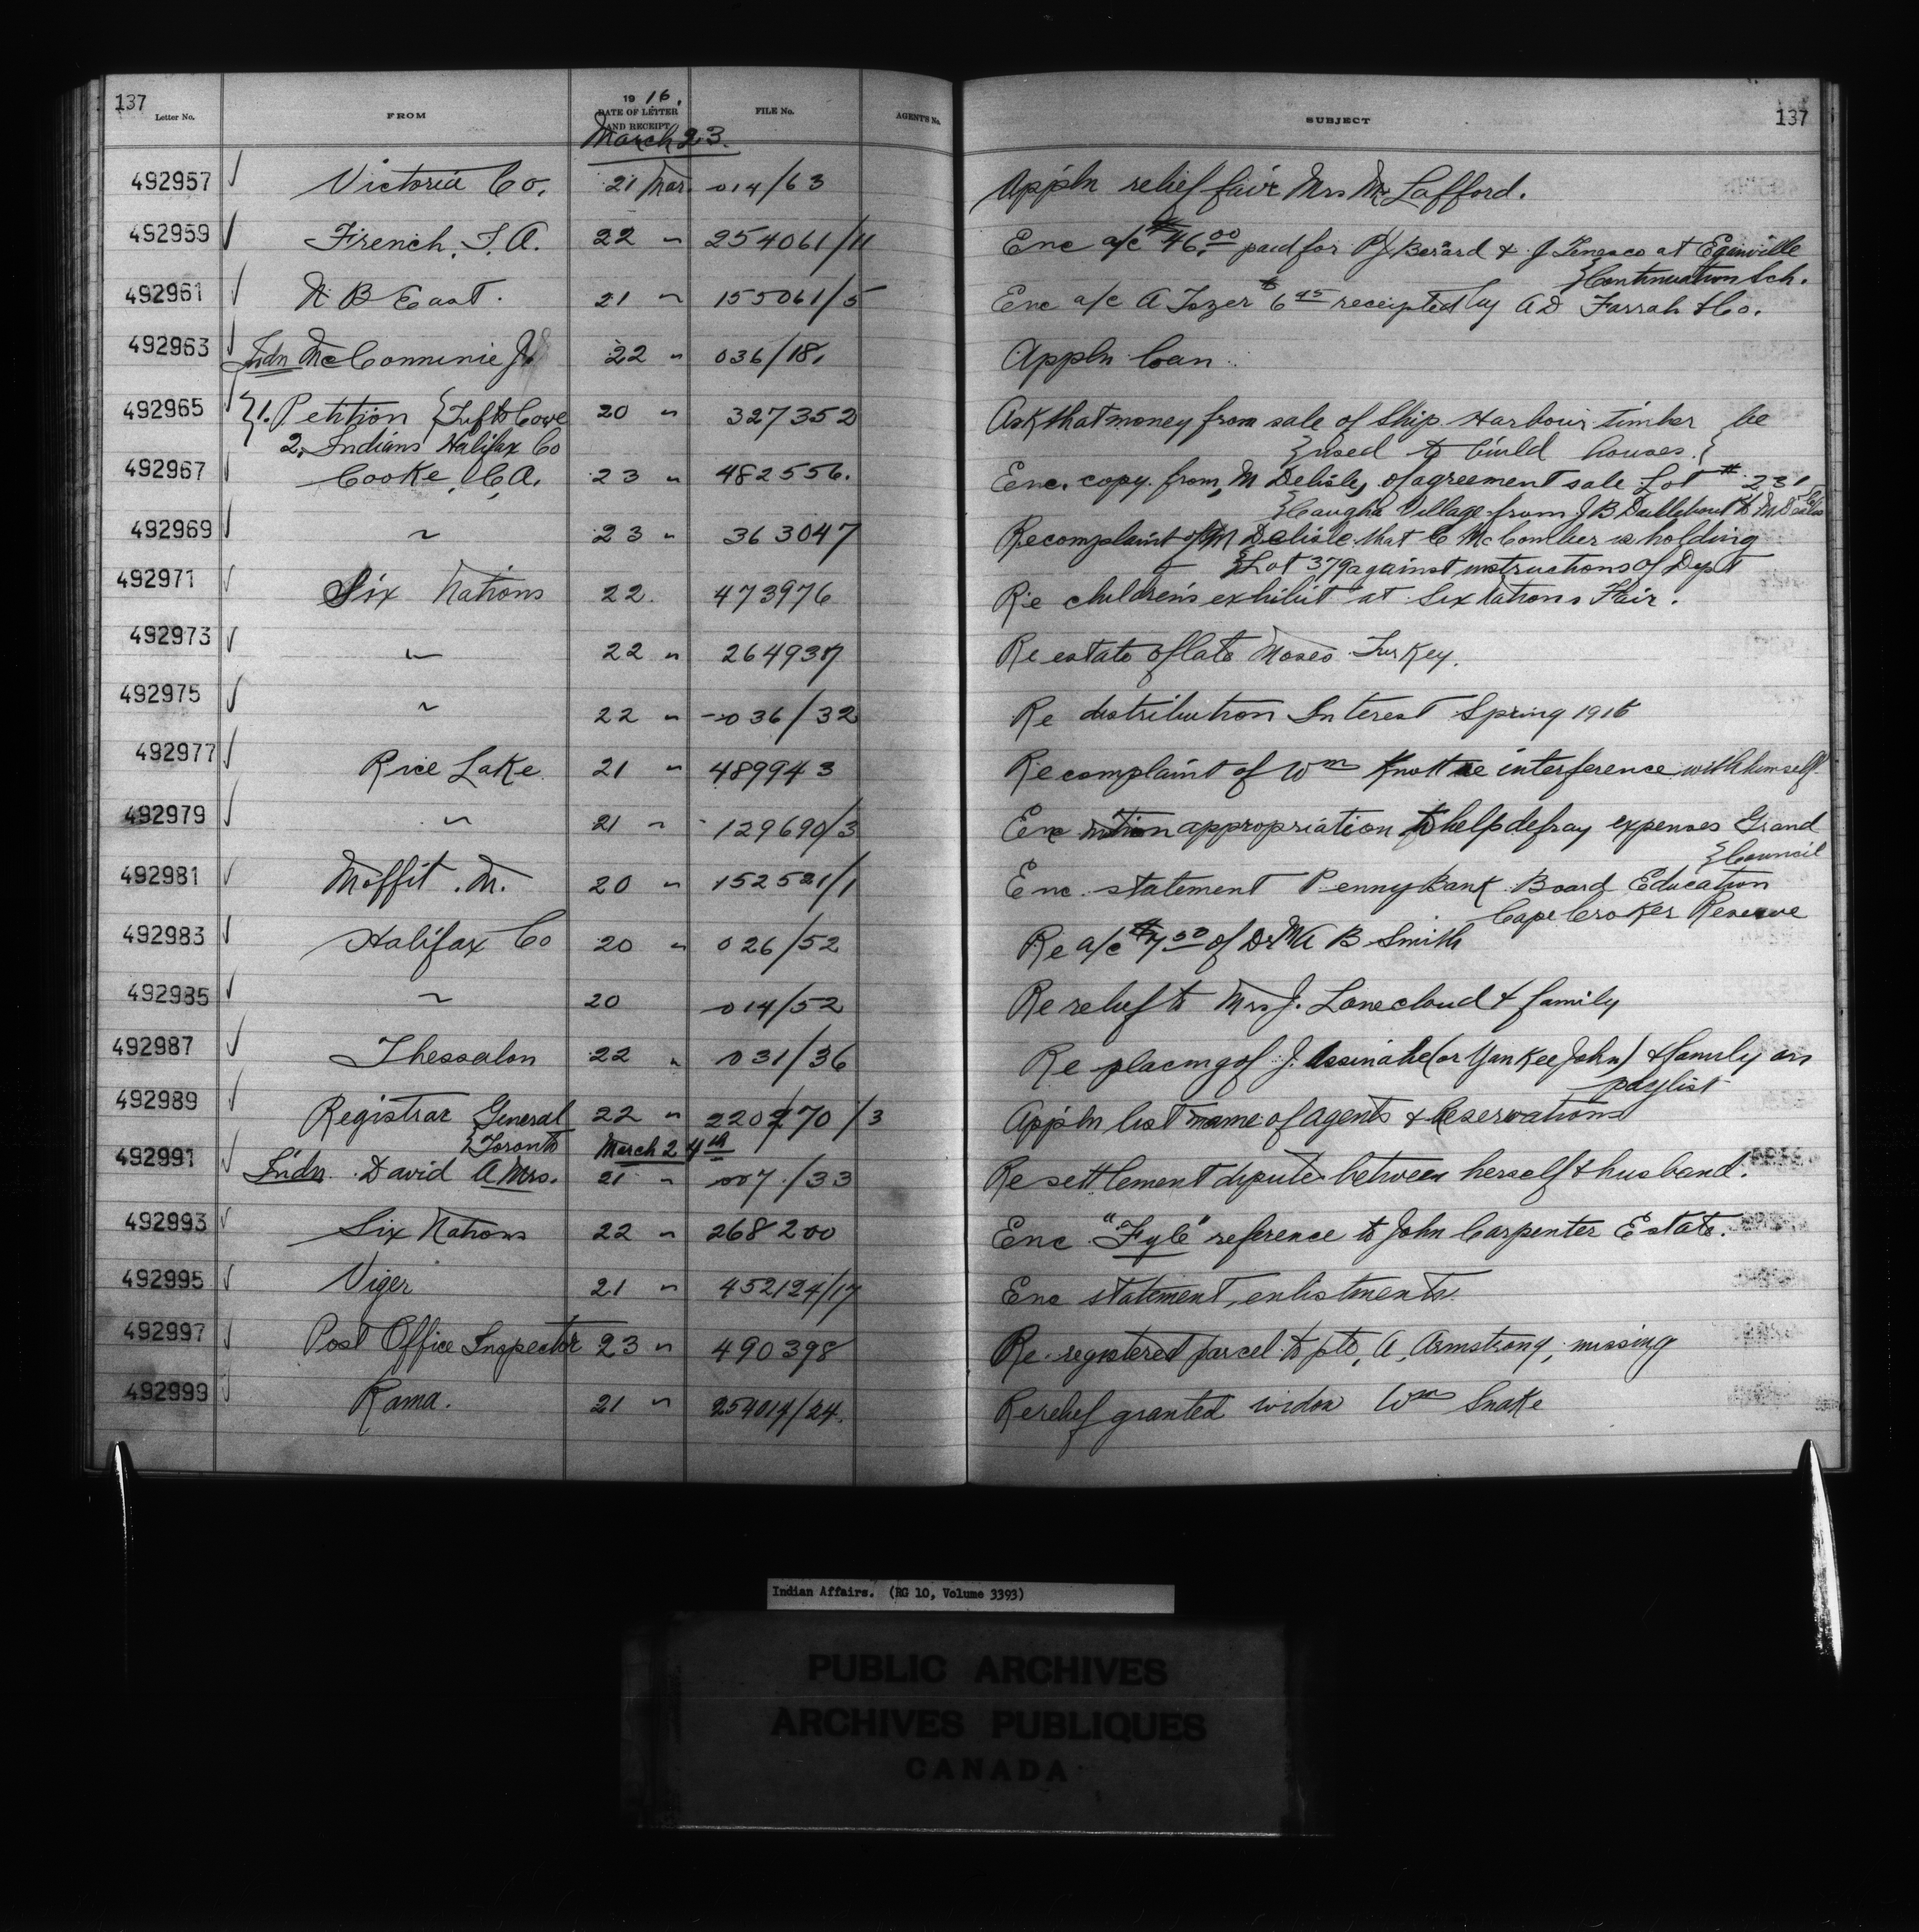 137
Letter No. FROM 1916. DATE OF LETTER AND RECEIPT FILE No. AGENT'S No. SUBJECT 137
March 23.
492957 Victoria Co. 21 Mar. 014/63 Appln relief fair Mrs Lafford.
492959 French, T. A. 22 " 254061/11 Enc a/c $46.00 paid for Berard & J at Eganville
}Continuation Sch.
492961 N B East. 21 " 155061/5 Enc a/c A Tozer $6 45 receipted by A D Farrah & Co.
492963 Indn McCommie J. 22 " 036/18. Appln loan.
492965 }1. Petition {Tufts Cove 20 " 327352 Ask that money from sale of Ship Harbour timber be
2. Indians Halifax Co }used to build houses.{
492967 Cooke, C, A. 23 " 482556. Enc. copy from M Delisle, of agreement sale Lot # 231
}Caugha Village from J B to M Delisle
492969 " 23 " 363047 Re complaint of M Delisle that C McComber is holding
}Lot 379 against instructions of Dept
492971 Six Nations 22. 473976 Re children's exhibit at Six Nations Fair.
492973 " 22 " 264937 Re estate of late Moses Turkey.
492975 " 22 " 036/32 Re distribution Interest Spring 1916
492977 Rice Lake 21 " 489943 Re complaint of Wm Knott re interference with himself
492979 " 21 " 129690/3 Enc motion appropriation to help defray expenses Grand
}Council
492981 Moffit. M. 20 " 152521/1 Enc. statement Penny Bank Board Education
Cape Croker Reserve
492983 Halifax Co 20 " 026/52 Re a/c $7 50 of Dr M A B Smith
492985 " 20 014/52 Re relief to Mrs J. Lonecloud & family
492987 Thessalon 22 " 031/36 Re placing of J. (or Yankee John) & family on
paylist
492989 Registrar General 22 " 220270/3 Appln list name of agents & Reservations
}Toronto March 24th
492991 Indn. David A Mrs. 21 " 007/33 Re settlement dispute between herself & husband.
492993 Six Nations 22 " 268200 Enc "Fyle" reference to John Carpenter Estate.
492995 Viger 21 " 452124/17 Enc statement, enlistments.
492997 Post Office Inspector 23 " 490398 Re registered parcel to pte, A, Armstrong, missing
492999 Rama. 21 " 254014/24. Re relief granted widow Wm Snake
Indian Affairs. (RG 10, Volume 3393)
PUBLIC ARCHIVES
ARCHIVES PUBLIQUES
CANADA